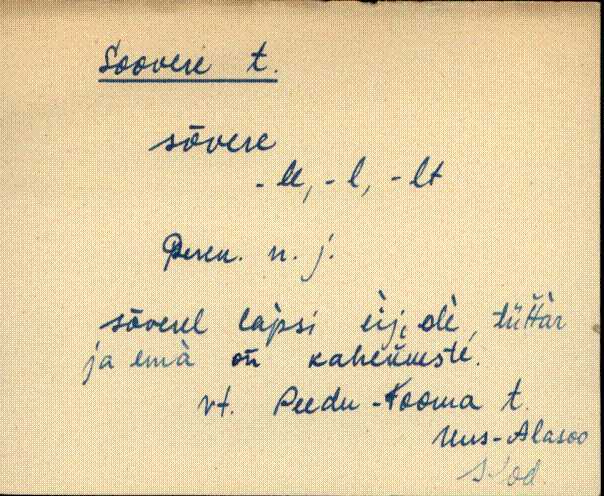 Soovere t.
sōvere
-le, -l, -lt
Peren. n. j.
sōverel là̀psi èij olè, tüttàr
ja emà on kahekeste.
vt. Peedu-Tooma t.
Uus-Alasoo